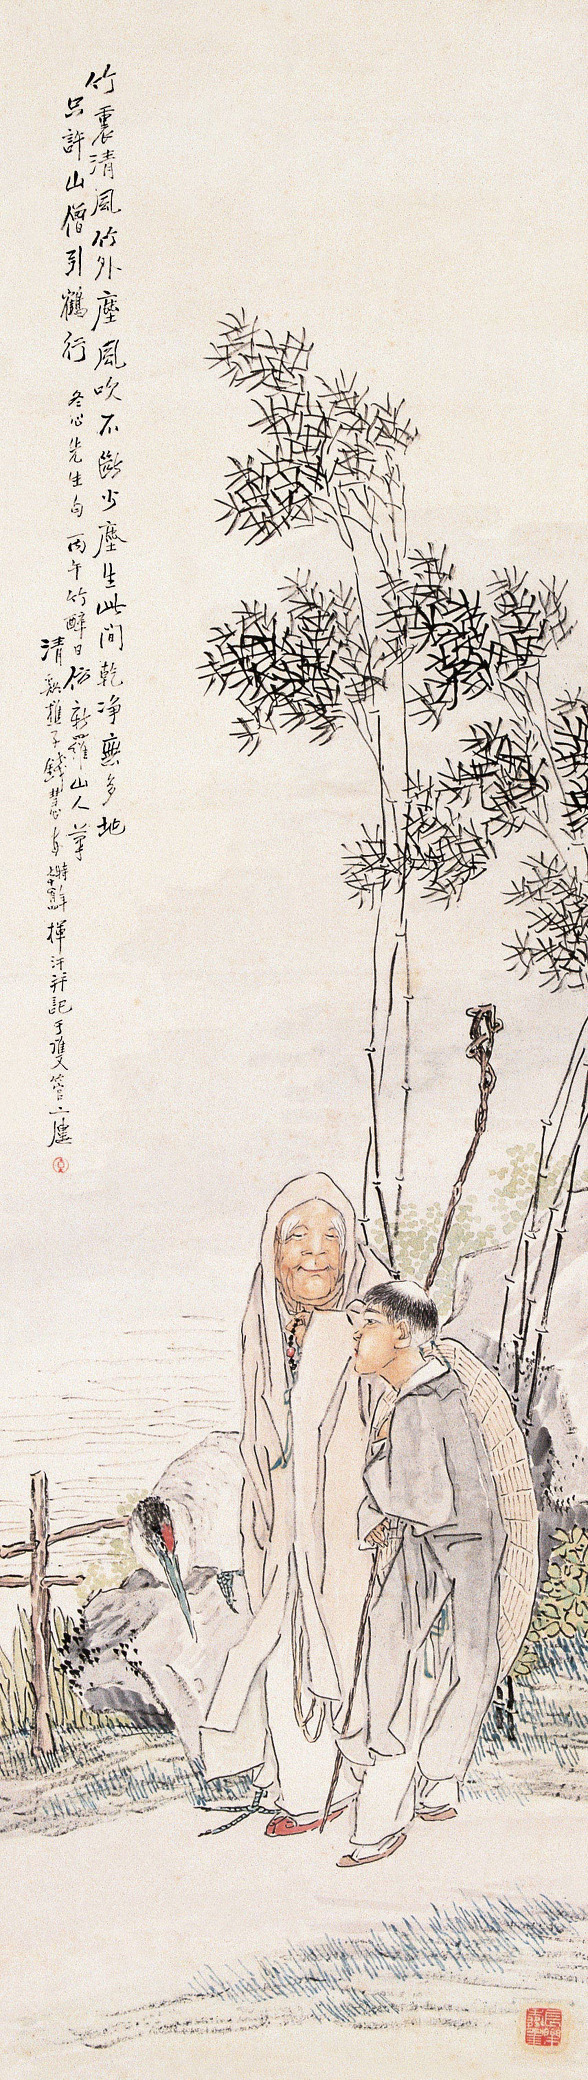 竹裏清風竹外塵風吹不斷少塵生此間乾淨無多地
只許山僧引鶴行 冬心先生句 丙午竹醉日仿新羅山人筆
清谿樵子錢慧安 時年七十有四 揮汗并記于雙管樓